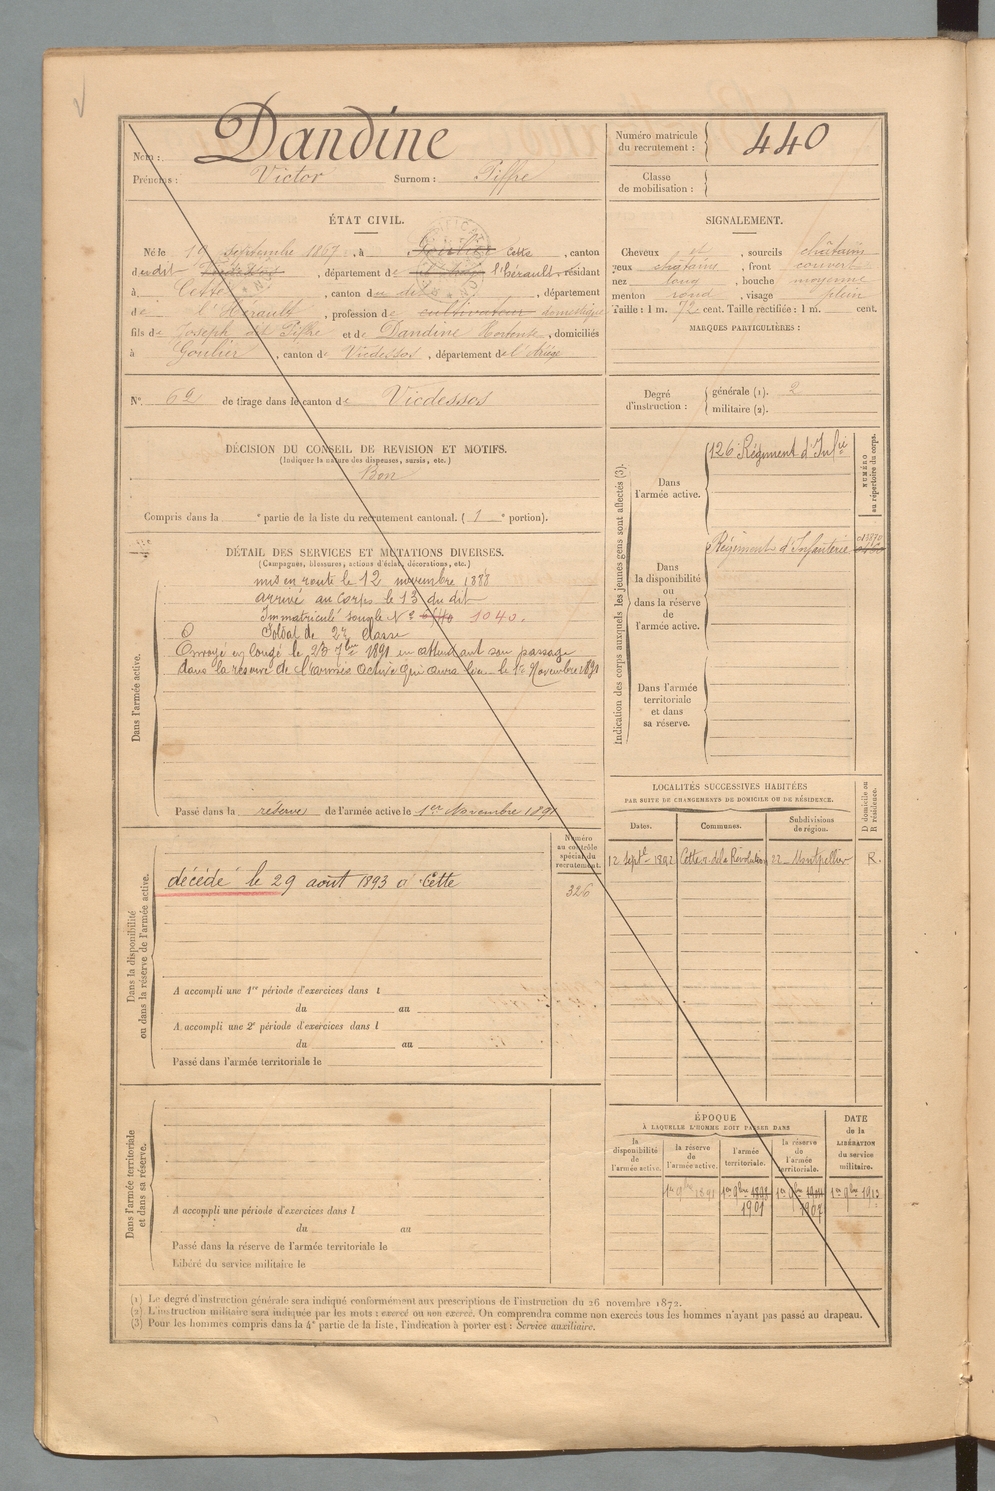 Nom : Dandine
Prénoms : Victor Surnom : Piffre
Numéro matricule du recrutement : 440
Classe de mobilisation :
ÉTAT CIVIL.
Né le 19 septembre 1867, à Goulier Cette, canton
dudit Vicdessos, département de l'Hérault, résidant
à Cette, canton du dit, département
de l'Hérault, profession de cultivateur domestique
fils de Joseph dit Piffre et de Dandine Hortense, domiciliés
à Goulier, canton de Vicdessos, département de l'Ariège
SIGNALEMENT.
Cheveux et, sourcils châtains
yeux châtains, front couvert
nez long, bouche moyenne
menton rond, visage plein
Taille : 1 m. 72 cent. Taille rectifiée : 1 m. cent.
MARQUES PARTICULIÈRES :
N° 62 de tirage dans le canton de Vicdessos
Degré d'instruction : générale (1). 2
militaire (2).
DÉCISION DU CONSEIL DE REVISION ET MOTIFS.
(Indiquer la nature des dispenses, sursis, etc.)
Bon
Compris dans la e partie de la liste du recrutement cantonal. ( 1 e portion).
DÉTAIL DES SERVICES ET MUTATIONS DIVERSES.
(Campagnes, blessures, actions d'éclat, décorations, etc.)
Dans l'armée active.
mis en route le 12 novembre 1888
arrivé au corps le 13 du dit
Immatriculé sous le N° 1040.
Soldat de 2e classe
Envoyé en congé le 23 7bre 1891 en attendant son passage
dans la réserve de l'armée active qui aura lieu le 1er Novembre 1891
Passé dans la réserve de l'armée active le 1er Novembre 1891
Indication des corps auxquels les jeunes gens sont affectés (3).
Dans l'armée active.
126e Régiment d'Infie
NUMÉRO au répertoire du corps.
Dans la disponibilité ou dans la réserve de l'armée active.
Régiment d'Infanterie
Dans l'armée territoriale et dans sa réserve.
LOCALITÉS SUCCESSIVES HABITÉES
PAR SUITE DE CHANGEMENTS DE DOMICILE OU DE RÉSIDENCE.
Dates. Communes. Subdivisions de région. D domicile ou R résidence.
12 septe 1892 Cette r. de la Révolution 22 Montpellier R.
Dans la disponibilité ou dans la réserve de l'armée active.
Numéro au contrôle spécial du recrutement.
décédé le 29 août 1893 à Cette
326
A accompli une 1re période d'exercices dans l
du au
A accompli une 2e période d'exercices dans l
du au
Passé dans l'armée territoriale le
Dans l'armée territoriale et dans sa réserve.
A accompli une période d'exercices dans l
du au
Passé dans la réserve de l'armée territoriale le
Libéré du service militaire le
ÉPOQUE
À LAQUELLE L'HOMME DOIT PASSER DANS
la disponibilité de l'armée active.
la réserve de l'armée active.
l'armée territoriale.
la réserve de l'armée territoriale.
DATE de la LIBÉRATION du service militaire.
1er 9bre 1891 1er 9bre 1898 1er 9bre 1904 1er 9bre 1913
1901 1907
(1) Le degré d'instruction générale sera indiqué conformément aux prescriptions de l'instruction du 26 novembre 1872.
(2) L'instruction militaire sera indiquée par les mots : exercé ou non exercé. On comprendra comme non exercés tous les hommes n'ayant pas passé au drapeau.
(3) Pour les hommes compris dans la 4e partie de la liste, l'indication à porter est : Service auxiliaire.